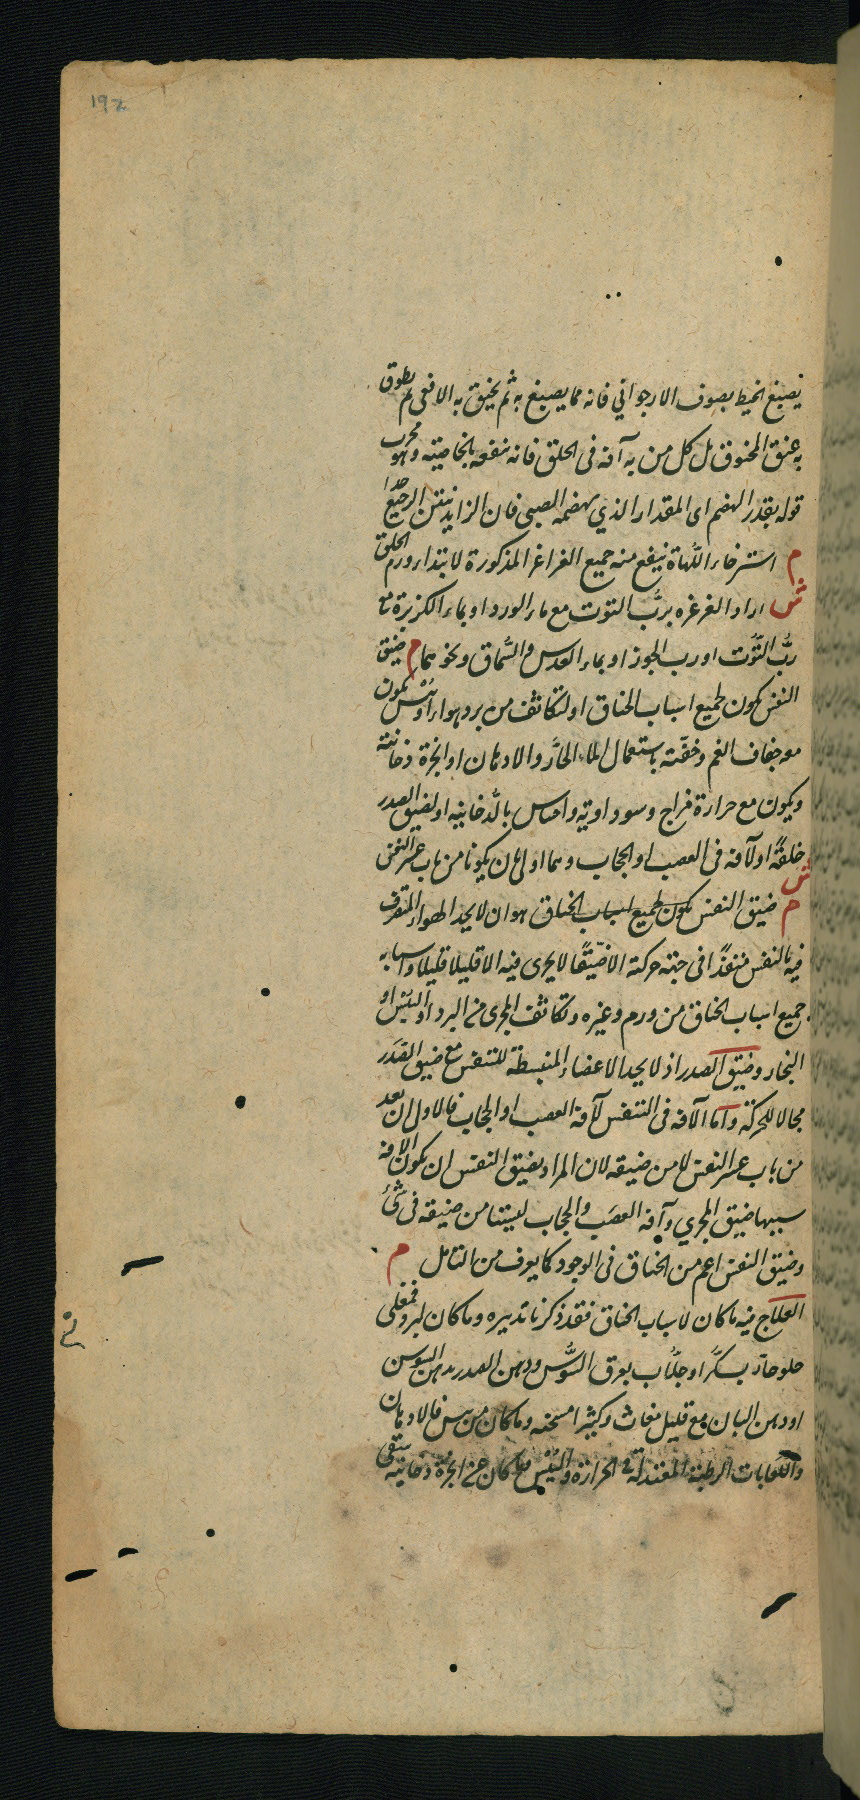 192
يصبغ الخيط بصوف الارجواني فانه مما يصبغ به ثم يخنق به الافعى ثم يطوق
به عنق المخنوق بل كل من به آفة فى الحلق فانه ينفعه بالخاصية وهو مجرب
قوله بقدر الهضم اى المقدار الذي يهضمه الصبى فان الزايد ينتن الرجيع جدا
م استرخاء اللهاة ينفع منه جميع الغراغر المذكورة لابتداء ورم الحلق
ش اراد الغرغره بربّ التوت مع ماء الورد او بماء الكزبرة مع
ربّ التّوت او رب الجوز او بماء العدس والسّماق ونحوهما م ضيق
النفس يكون لجميع اسباب الخناق او لتكاثف من برد هواء او يُبْس يكون
معه جفاف الفم وخفّته باستعمال الماء الحارّ والادهان او ابخرة دخانية
ويكون مع حرارة مزاج وسوداوية واحساس بالدّخانيه او لضيق الصدر
خلقةً او لآفة فى العصب او الحجاب وهما اولى بان يكونا من باب عسر النفس
ش م ضيق النفس يكون لجميع اسباب الخناق هو ان لا يجد الهواء المتصرف
فيه بالنفس منفذًا فى جهة حركته الا ضيّقًا لا يجرى فيه الا قليلا قليلا واسبابه
جميع اسباب الخناق من ورم وغيره وتكاثف المجرى من البرد او اليُبْس او
البخار وضيق الصدر اذ لا يجد الاعضاء المنبسطة للتنفس مع ضيق الصدر
مجالا للحركة وامّا الآفة فى التنفس لآفة العصب او الحجاب فالاولى ان تعد
من باب عسر النفس لا من ضيقه لان المراد بضيق النفس ان يكون الآفة
سببها ضيق المجرى وآفة العصَب والحجاب ليستا من ضيقه فى شئ
وضيق النفس اعم من الخناق فى الوجود كما يعرف من التامل م
العلاج فيه ما كان لاسباب الخناق فقد ذكرنا تدبيره وما كان لبرد فمغلى
حلو حارّ بسكّر او جلّاب بعرق السُّوس ودهن الصدر بدهن السوسن
او دهن البان مع قليل مغاث وكثيرا مسخنه وما كان من يبس فالادهان
واللّعابات الرطبة المعتدلة فى الحرارة واليُبْس وما كان من ابخرة دخانية ينقى